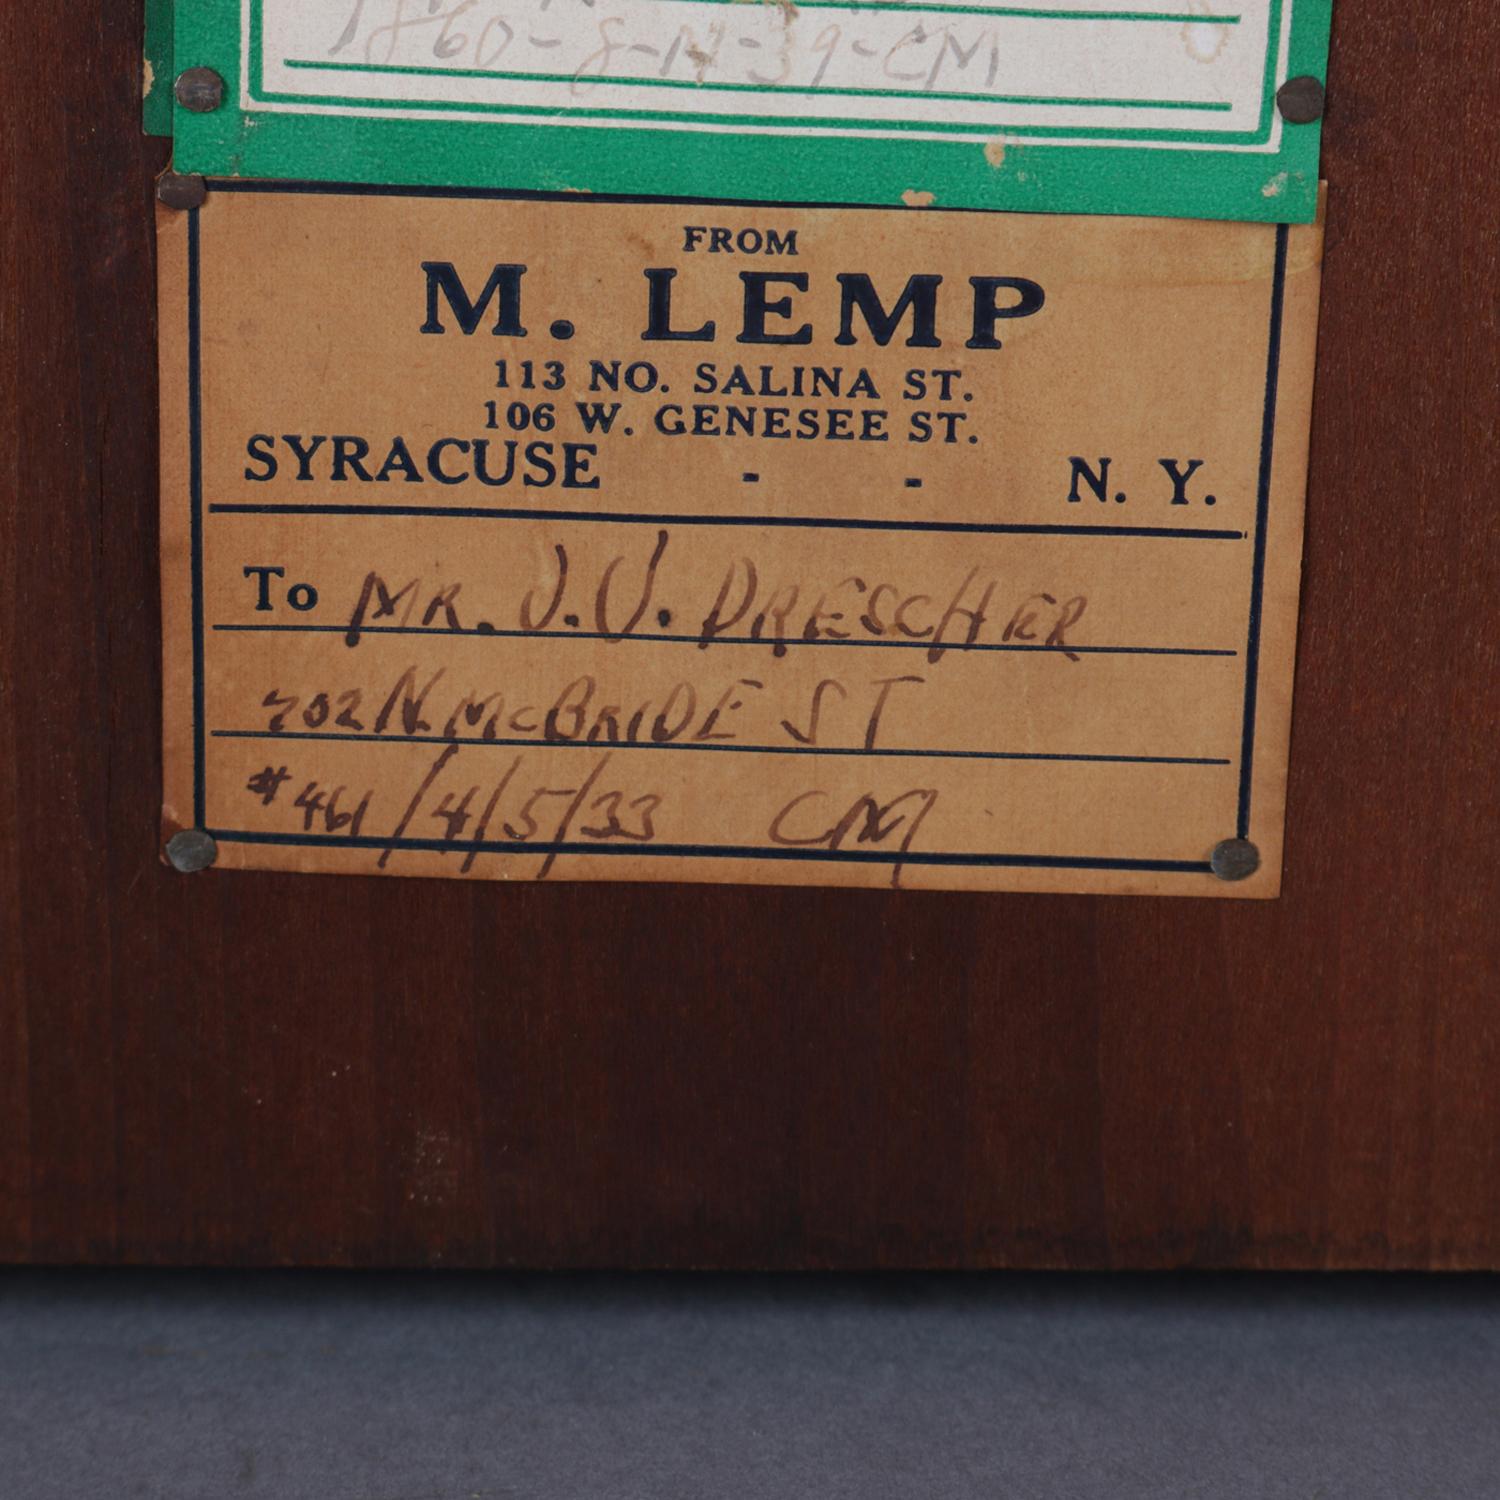 1860-8-N-39-CM
FROM
M. LEMP
113 NO. SALINA ST.
106 W. GENESEE ST.
SYRACUSE - - N. Y.
To MR. J. J. DRESCHER
702 N. McBRIDE ST
#461/4/5/33 CM